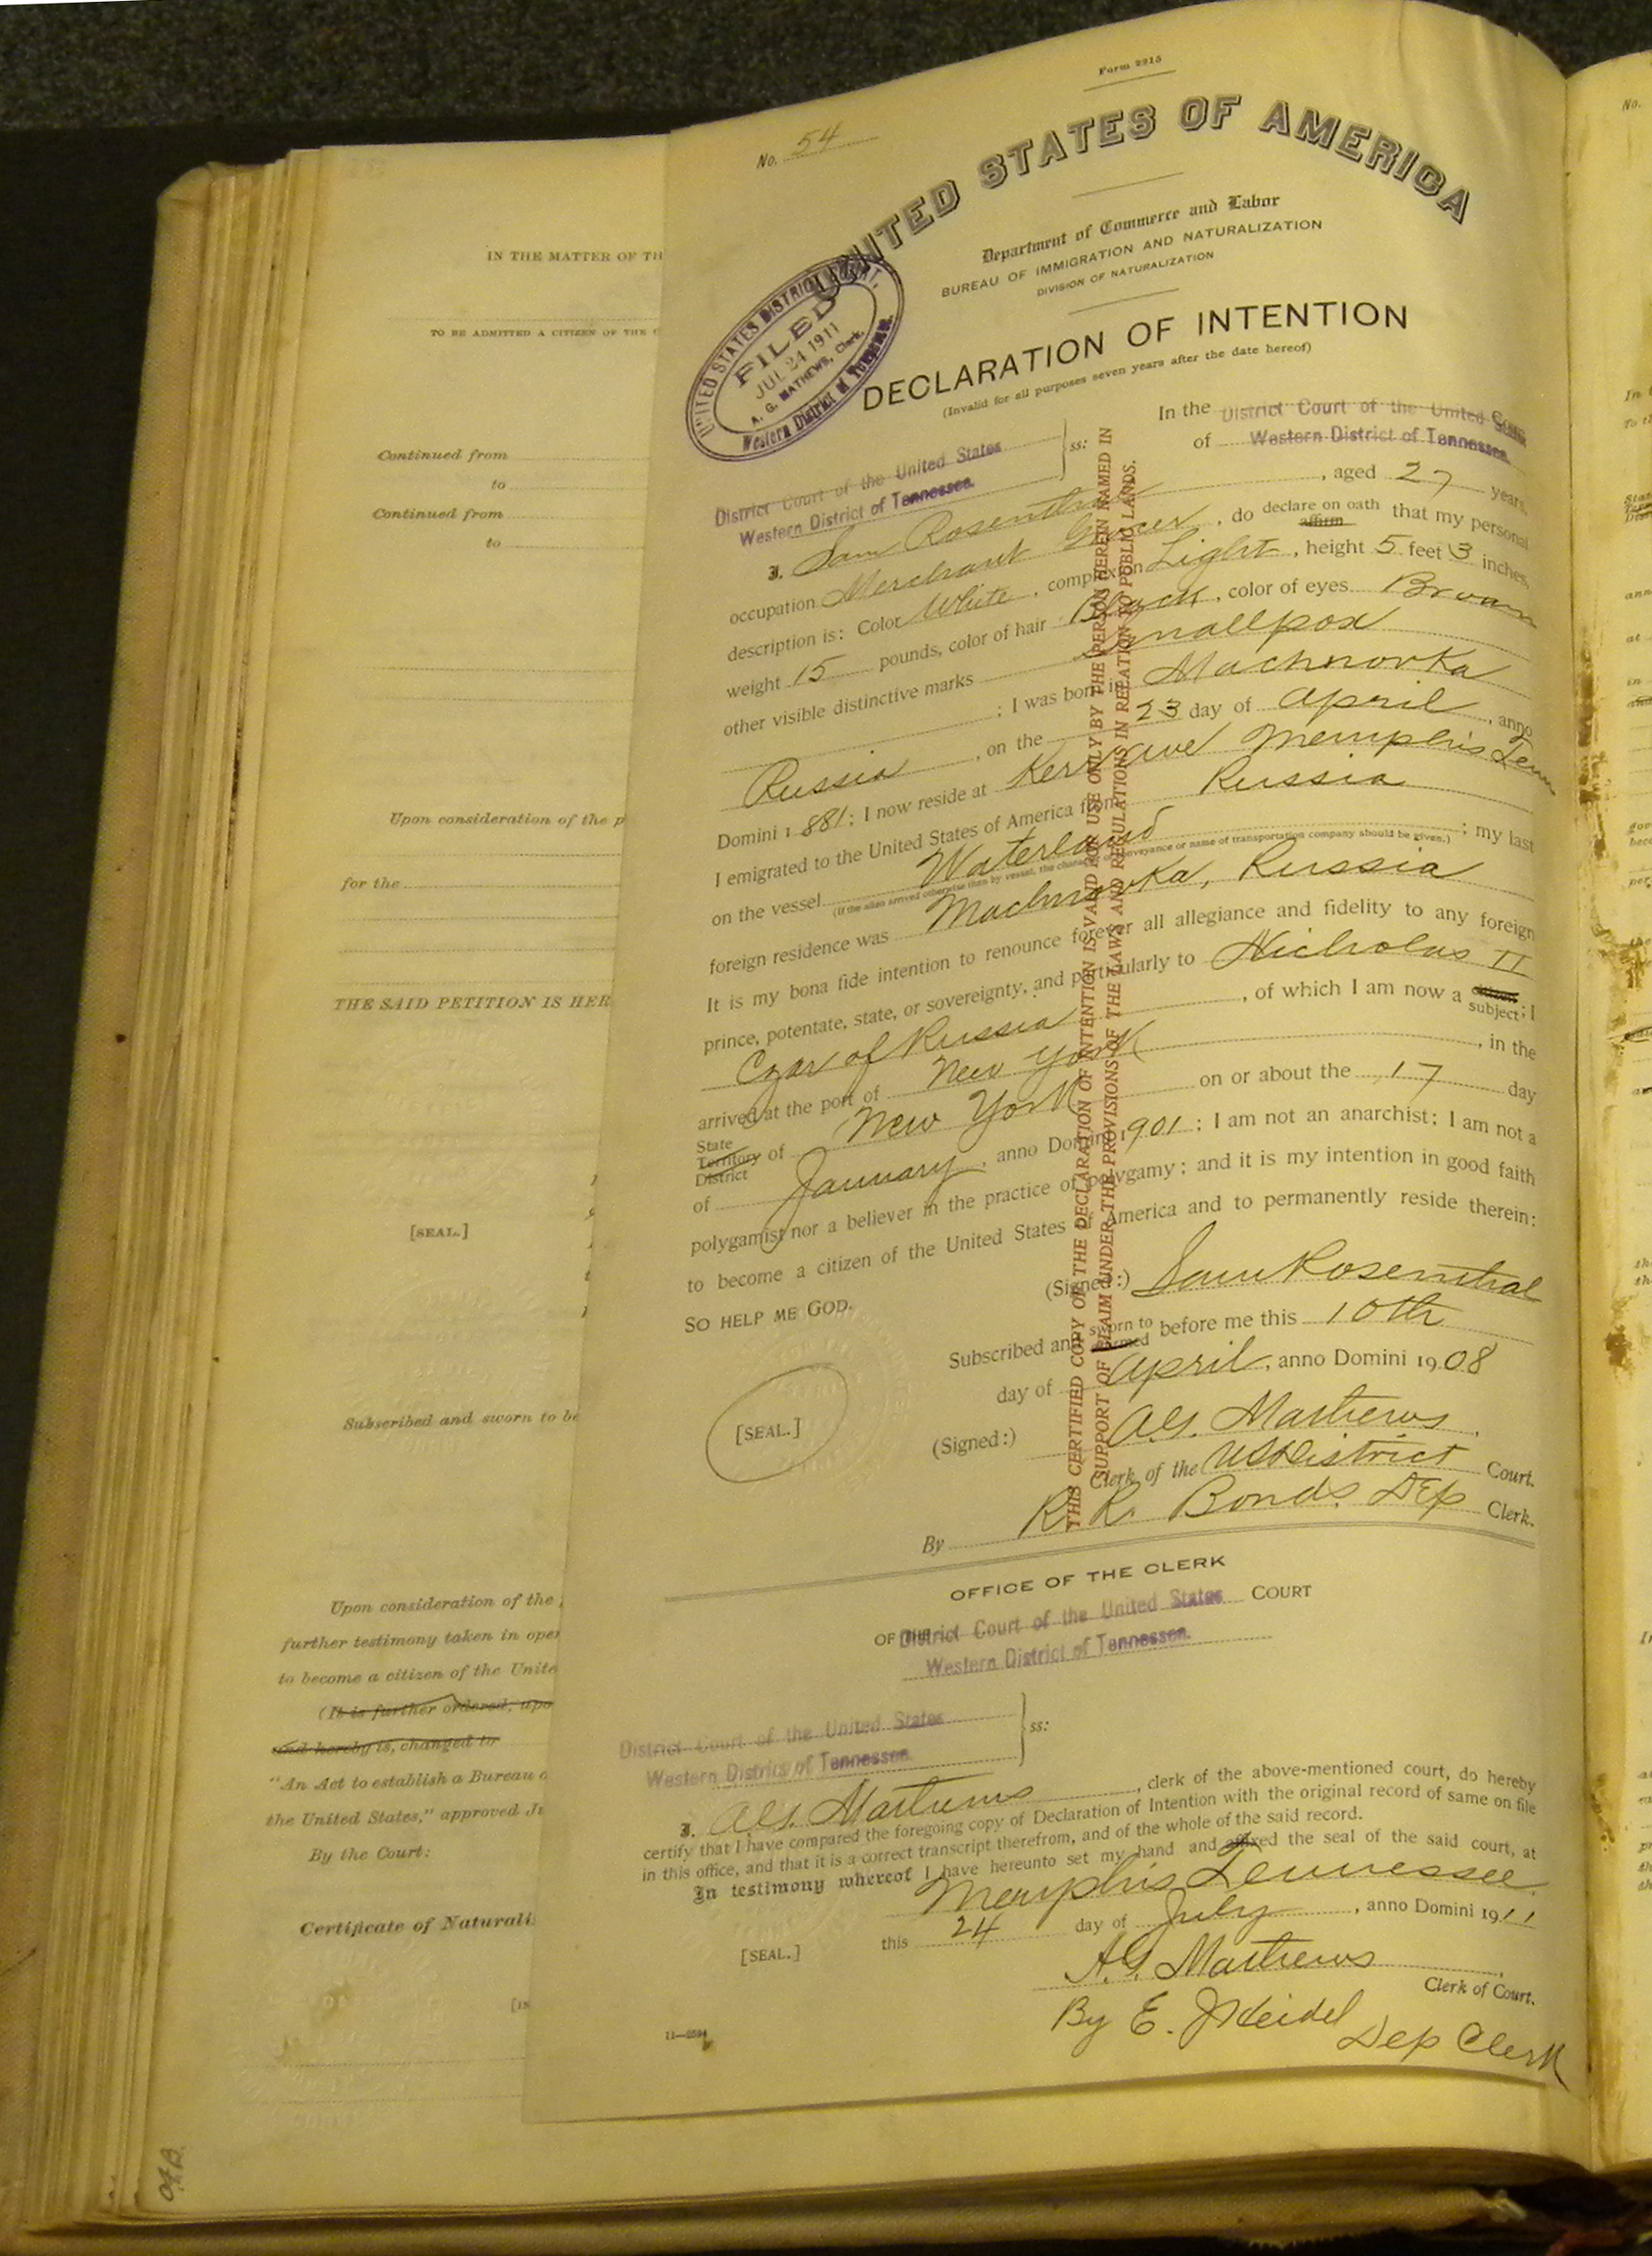 IN THE MATTER OF TH
TO BE ADMITTED A CITIZEN OF THE
Continued from
to
Continued from
to
Upon consideration of the p
for the
THE SAID PETITION IS HER
[SEAL.]
Subscribed and sworn to be
Upon consideration of the
further testimony taken in open
to become a citizen of the Unite
(It is further ordered, upo
and hereby is, changed to
"An Act to establish a Bureau o
the United States," approved Ju
By the Court:
Certificate of Naturali
Form 2215
No. 54
UNITED STATES OF AMERICA
Department of Commerce and Labor
BUREAU OF IMMIGRATION AND NATURALIZATION
DIVISION OF NATURALIZATION
UNITED STATES DISTRICT COURT,
FILED
JUL 24 1911
A. G. MATHEWS, Clerk.
Western District of Tennessee.
DECLARATION OF INTENTION
(Invalid for all purposes seven years after the date hereof)
In the District Court of the United States
of Western District of Tennessee.
District Court of the United States
Western District of Tennessee.
ss:
I, Sam Rosenthal, aged 27 years,
occupation Merchant Grocer, do declare on oath affirm that my personal
description is: Color White, complexion Light, height 5 feet 3 inches,
weight 15 pounds, color of hair Black, color of eyes Brown
other visible distinctive marks Smallpox
; I was born in Machnovka
Russia, on the 23 day of April, anno
Domini 1881; I now reside at Kerr ave Memphis Tenn
I emigrated to the United States of America from Russia
on the vessel Waterland; my last
(If the alien arrived otherwise than by vessel, the character of conveyance or name of transportation company should be given.)
foreign residence was Machnovka, Russia
It is my bona fide intention to renounce forever all allegiance and fidelity to any foreign
prince, potentate, state, or sovereignty, and particularly to Nicholas II
Czar of Russia, of which I am now a citizen subject; I
arrived at the port of New York, in the
State Territory District of New York on or about the 17 day
of January, anno Domini 1901; I am not an anarchist; I am not a
polygamist nor a believer in the practice of polygamy; and it is my intention in good faith
to become a citizen of the United States of America and to permanently reside therein:
SO HELP ME GOD.
(Signed:) Sam Rosenthal
Subscribed and sworn to affirmed before me this 10th
day of April, anno Domini 1908
[SEAL.]
(Signed:) A.G. Mathews
Clerk of the US District Court.
By R. R. Bonds Dep Clerk.
THIS CERTIFIED COPY OF THE DECLARATION OF INTENTION IS VALID FOR USE ONLY BY THE PERSON HEREIN NAMED IN
SUPPORT OF CLAIM UNDER THE PROVISIONS OF THE LAWS AND REGULATIONS IN RELATION TO PUBLIC LANDS.
OFFICE OF THE CLERK
OF THE District Court of the United States COURT
Western District of Tennessee.
District Court of the United States
Western District of Tennessee.
ss:
I, A.G. Mathews, clerk of the above-mentioned court, do hereby
certify that I have compared the foregoing copy of Declaration of Intention with the original record of same on file
in this office, and that it is a correct transcript therefrom, and of the whole of the said record.
In testimony whereof I have hereunto set my hand and affixed the seal of the said court, at
Memphis Tennessee
this 24 day of July, anno Domini 1911
[SEAL.]
A.G. Mathews
Clerk of Court.
By E. J Heidel
Dep Clerk